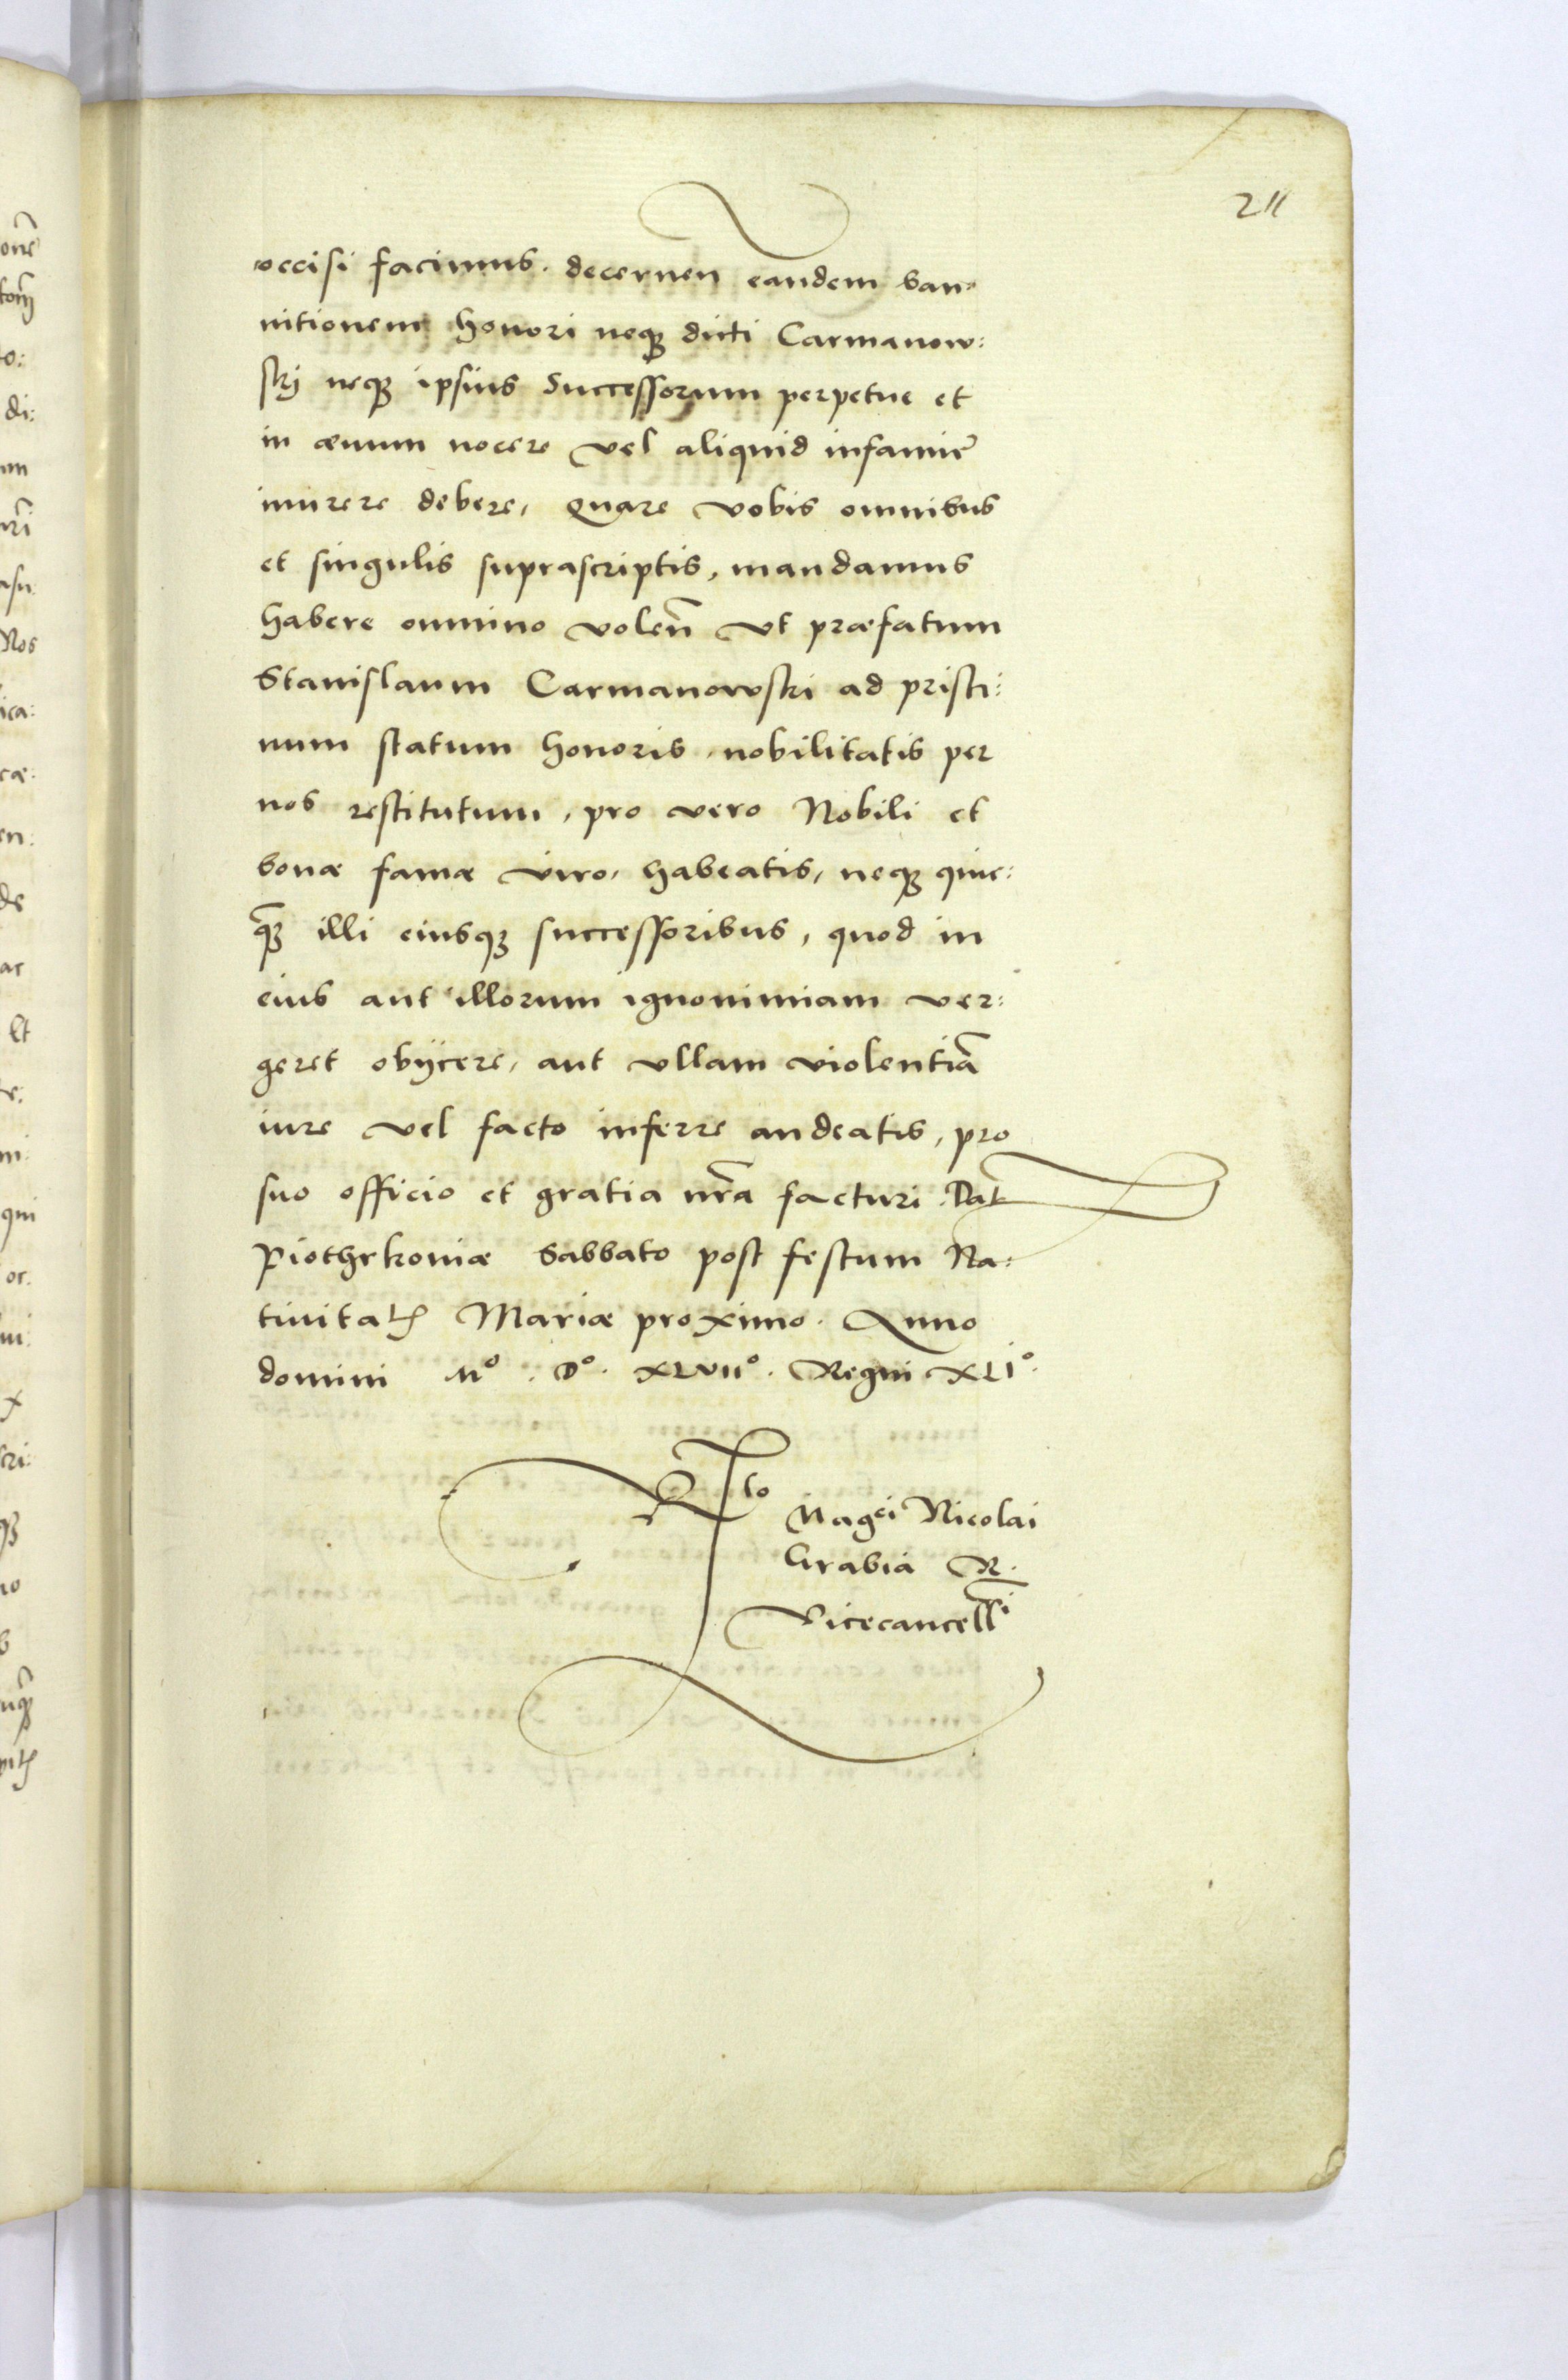 211
occisi facimus. decernen eandem ban-
nitionem honori neqꝫ dicti Carmanow:
skÿ neqꝫ ipsius Successorum perpetue et
in æuum nocere vel aliquid infamiæ
inurere debere, Quare vobis omnibus
et singulis suprascriptis, mandamus
habere omnino voleñ vt præfatum
Stanislaum Carmanowski ad pristi:
num statum honoris, nobilitatis per
nos restitutum, pro vero Nobili et
bonæ famæ viro, habeatis, neqꝫ quic:
q̃ꝫ illi eiusqꝫ successoribus, quod in
eius aut illorum ignominiam ver:
geret obÿcere, aut vllam violentiã
iure vel facto inferre audeatis, pro
suo officio et gratia nr̃a facturi. Dat
Piothrkouiæ Sabbato post festum Na:
tiuitatꝭ Mariæ proximo. Anno
domini Mº. Dº. XLVIIº. Regni XLIº.
Rto
Magci Nicolai
Grabia R.
Vicecancellⁱ